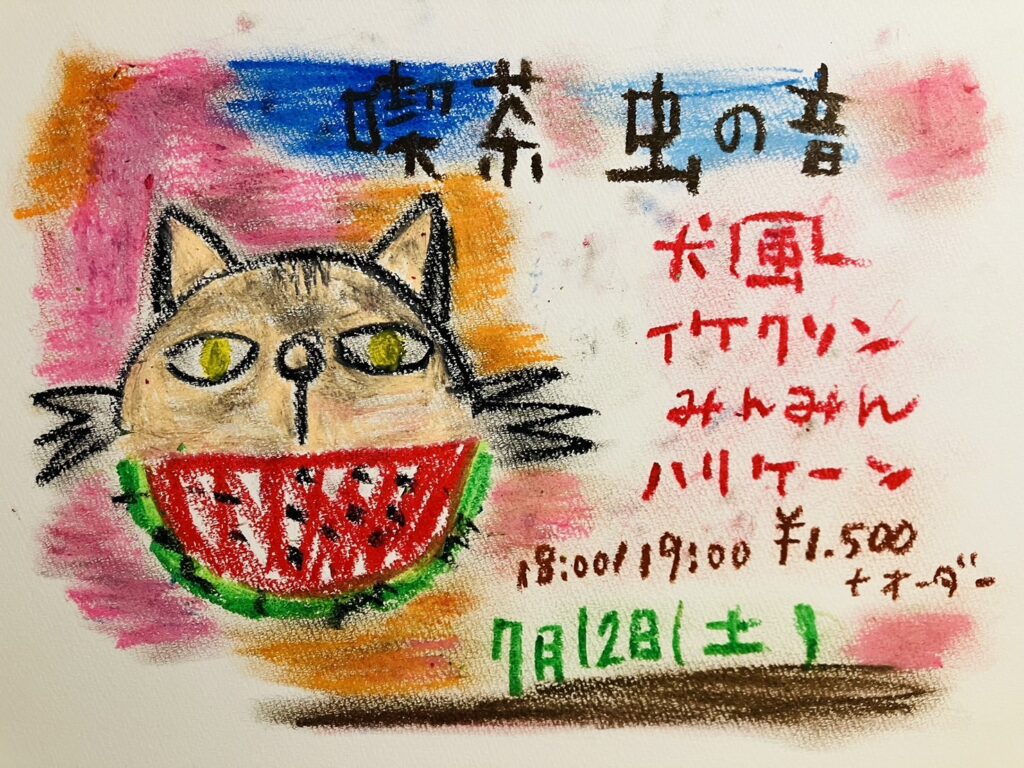 喫茶 虫の音
犬風
イケクソン
みんみん
ハリケーン
18:00/19:00 ¥1.500
+オーダー
7月12日(土)